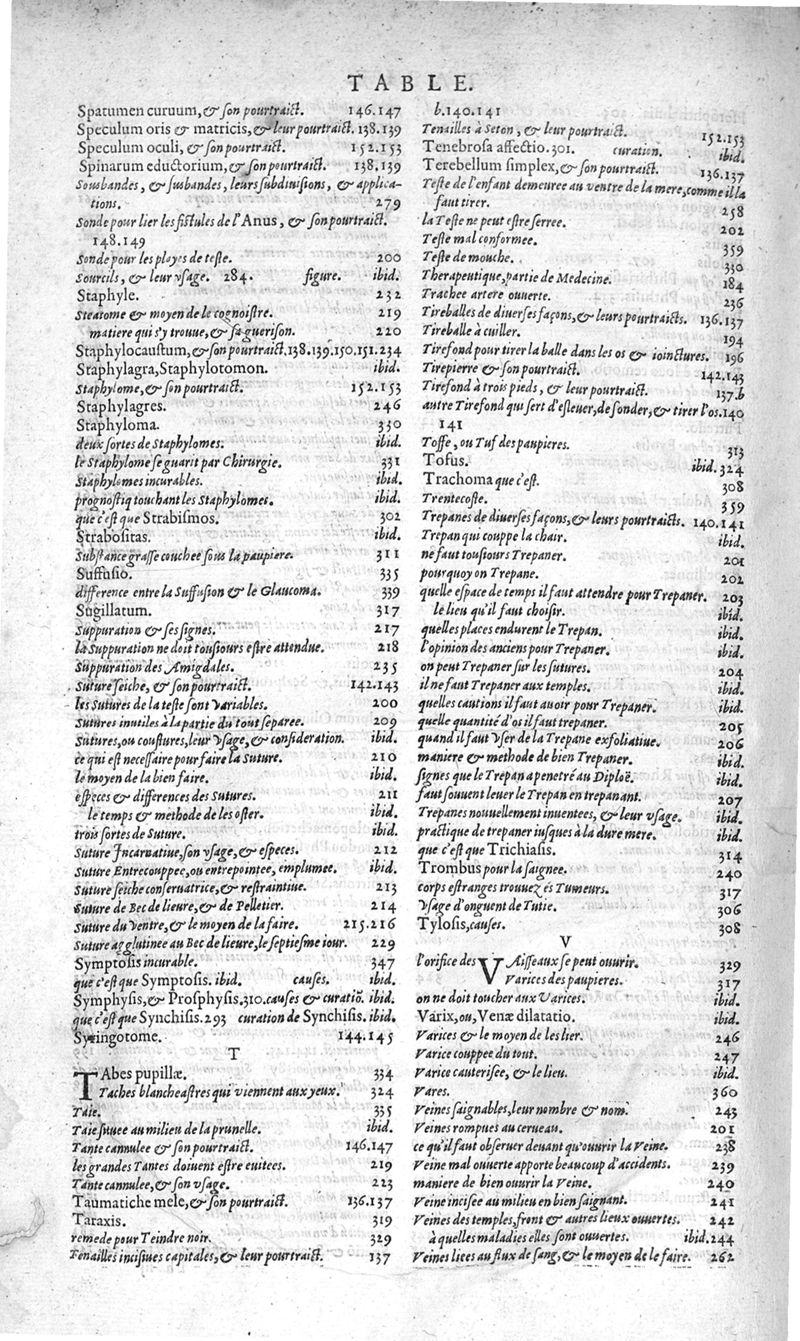 TABLE.
Spatumen curuum, & son pourtraict. 146.147
Speculum oris & matricis, & leur pourtraict. 138.139
Speculum oculi, & son pourtraict. 152.153
Spinarum eductorium, & son pourtraict. 138.139
Sousbandes, & susbandes, leurs subdiuisions, & applica-
tions. 279
Sonde pour lier les fistules de l'Anus, & son pourtraict.
148.149
Sonde pour les playes de teste. 200
Sourcils, & leur vsage. 284. figure. ibid.
Staphyle. 232
Steatome & moyen de le cognoistre. 219
matiere qui s'y trouue, & sa guerison. 220
Staphylocaustum, & son pourtraict. 138.139.150.151.234
Staphylagra, Staphylotomon. ibid.
Staphylome, & son pourtraict. 152.153
Staphylagres. 246
Staphyloma. 330
deux sortes de Staphylomes. ibid.
le Staphylome se guarit par Chirurgie. 331
Staphylomes incurables. ibid.
prognostiq touchant les Staphylomes. ibid.
que c'est que Strabismos. 302
Strabositas. ibid.
Substance grasse couchee sous la paupiere. 311
Suffusio. 335
difference entre la Suffusion & le Glaucoma. 339
Sugillatum. 317
Suppuration & ses signes. 217
la Suppuration ne doit tousiours estre attendue. 218
Suppuration des Amigdales. 235
Suture seiche, & son pourtraict. 142.143
les Sutures de la teste sont variables. 200
Sutures inutiles à la partie du tout separee. 209
Sutures, ou coustures, leur vsage, & consideration. ibid.
ce qui est necessaire pour faire la Suture. 210
le moyen de la bien faire. ibid.
especes & differences des Sutures. 211
le temps & methode de les oster. ibid.
trois sortes de Suture. ibid.
Suture Incarnatiue, son vsage, & especes. 212
Suture Entrecouppee, ou entrepointee, emplumee. ibid.
Suture seiche conseruatrice, & restraintiue. 213
Suture de Bec de lieure, & de Pelletier. 214
Suture du ventre, & le moyen de la faire. 215.216
Suture agglutinee au Bec de lieure, le septiesme iour. 229
Symptosis incurable. 347
que c'est que Symptosis. ibid. causes. ibid.
Symphysis, & Prosphysis. 310. causes & curatiō. ibid.
que c'est que Synchisis. 293 curation de Synchisis. ibid.
Syringotome. 144.145
T
TAbes pupillæ. 334
Taches blancheastres qui viennent aux yeux. 324
Taie. 335
Taie situee au milieu de la prunelle. ibid.
Tante cannulee & son pourtraict. 146.147
les grandes Tantes doiuent estre euitees. 219
Tante cannulee, & son vsage. 223
Taumatiche mele, & son pourtraict. 136.137
Taraxis. 319
remede pour Teindre noir. 329
Tenailles incisiues capitales, & leur pourtraict. 137
b.140.141
Tenailles à Seton, & leur pourtraict. 152.153
Tenebrosa affectio. 301. curation. ibid.
Terebellum simplex, & son pourtraict. 136.137
Teste de l'enfant demeuree au ventre de la mere, comme il la
faut tirer. 258
la Teste ne peut estre serree. 202
Teste mal conformee. 359
Teste de mouche. 330
Therapeutique, partie de Medecine. 184
Trachee artere ouuerte. 236
Tireballes de diuerses façons, & leurs pourtraicts. 136.137
Tireballe à cuiller. 194
Tirefond pour tirer la balle dans les os & ioinctures. 196
Tirepierre & son pourtraict. 142.143
Tirefond à trois pieds, & leur pourtraict. 137.b
autre Tirefond qui sert d'esleuer, de sonder, & tirer l'os. 140
141
Toffe, ou Tuf des paupieres. 313
Tofus. ibid. 324
Trachoma que c'est. 308
Trentecoste. 359
Trepanes de diuerses façons, & leurs pourtraicts. 140.141
Trepan qui couppe la chair. ibid.
ne faut tousiours Trepaner. 201
pourquoy on Trepane. 202
quelle espace de temps il faut attendre pour Trepaner. 203
le lieu qu'il faut choisir. ibid.
quelles places endurent le Trepan. ibid.
l'opinion des anciens pour Trepaner. ibid.
on peut Trepaner sur les sutures. 204
il ne faut Trepaner aux temples. ibid.
quelles cautions il faut auoir pour Trepaner. ibid.
quelle quantité d'os il faut trepaner. 205
quand il faut vser de la Trepane exfoliatiue. 206
maniere & methode de bien Trepaner. ibid.
signes que le Trepan a penetré au Diploë. ibid.
faut souuent leuer le Trepan en trepanant. 207
Trepanes nouuellement inuentees, & leur vsage. ibid.
practique de trepaner iusques à la dure mere. ibid.
que c'est que Trichiasis. 314
Trombus pour la saignee. 240
corps estranges trouuez és Tumeurs. 317
vsage d'onguent de Tutie. 306
Tylosis, causes. 308
V
l'orifice des VAisseaux se peut ouurir. 329
Varices des paupieres. 317
on ne doit toucher aux Varices. ibid.
Varix, ou, Venæ dilatatio. ibid.
Varices & le moyen de les lier. 246
Varice couppee du tout. 247
Varice cauterisee, & le lieu. ibid.
Vares. 360
Veines saignables, leur nombre & nom. 243
Veines rompues au cerueau. 201
ce qu'il faut obseruer deuant qu'ouurir la Veine. 238
Veine mal ouuerte apporte beaucoup d'accidents. 239
maniere de bien ouurir la Veine. 240
Veine incisee au milieu en bien saignant. 241
Veines des temples, front & autres lieux ouuertes. 242
à quelles maladies elles sont ouuertes. ibid. 244
Veines liees au flux de sang, & le moyen de le faire. 262